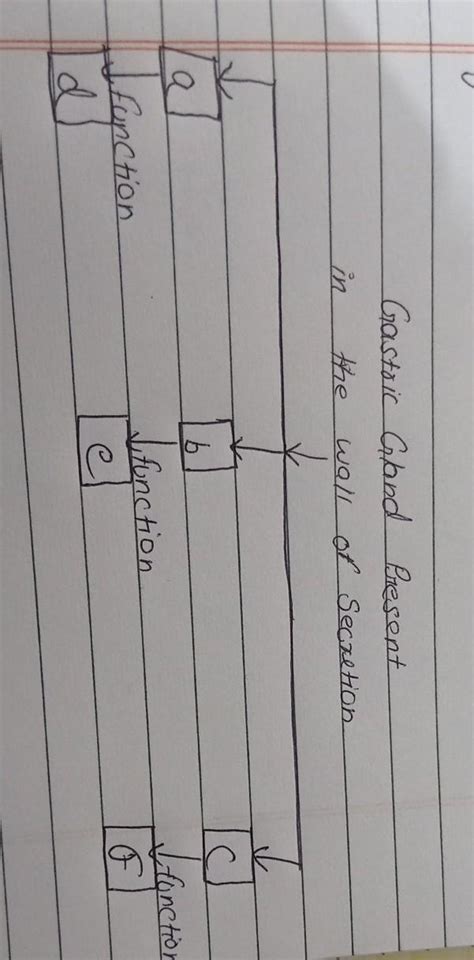 Gastric Gland Present
in the wall of Secretion
a
b
c
function
function
function
d
e
f